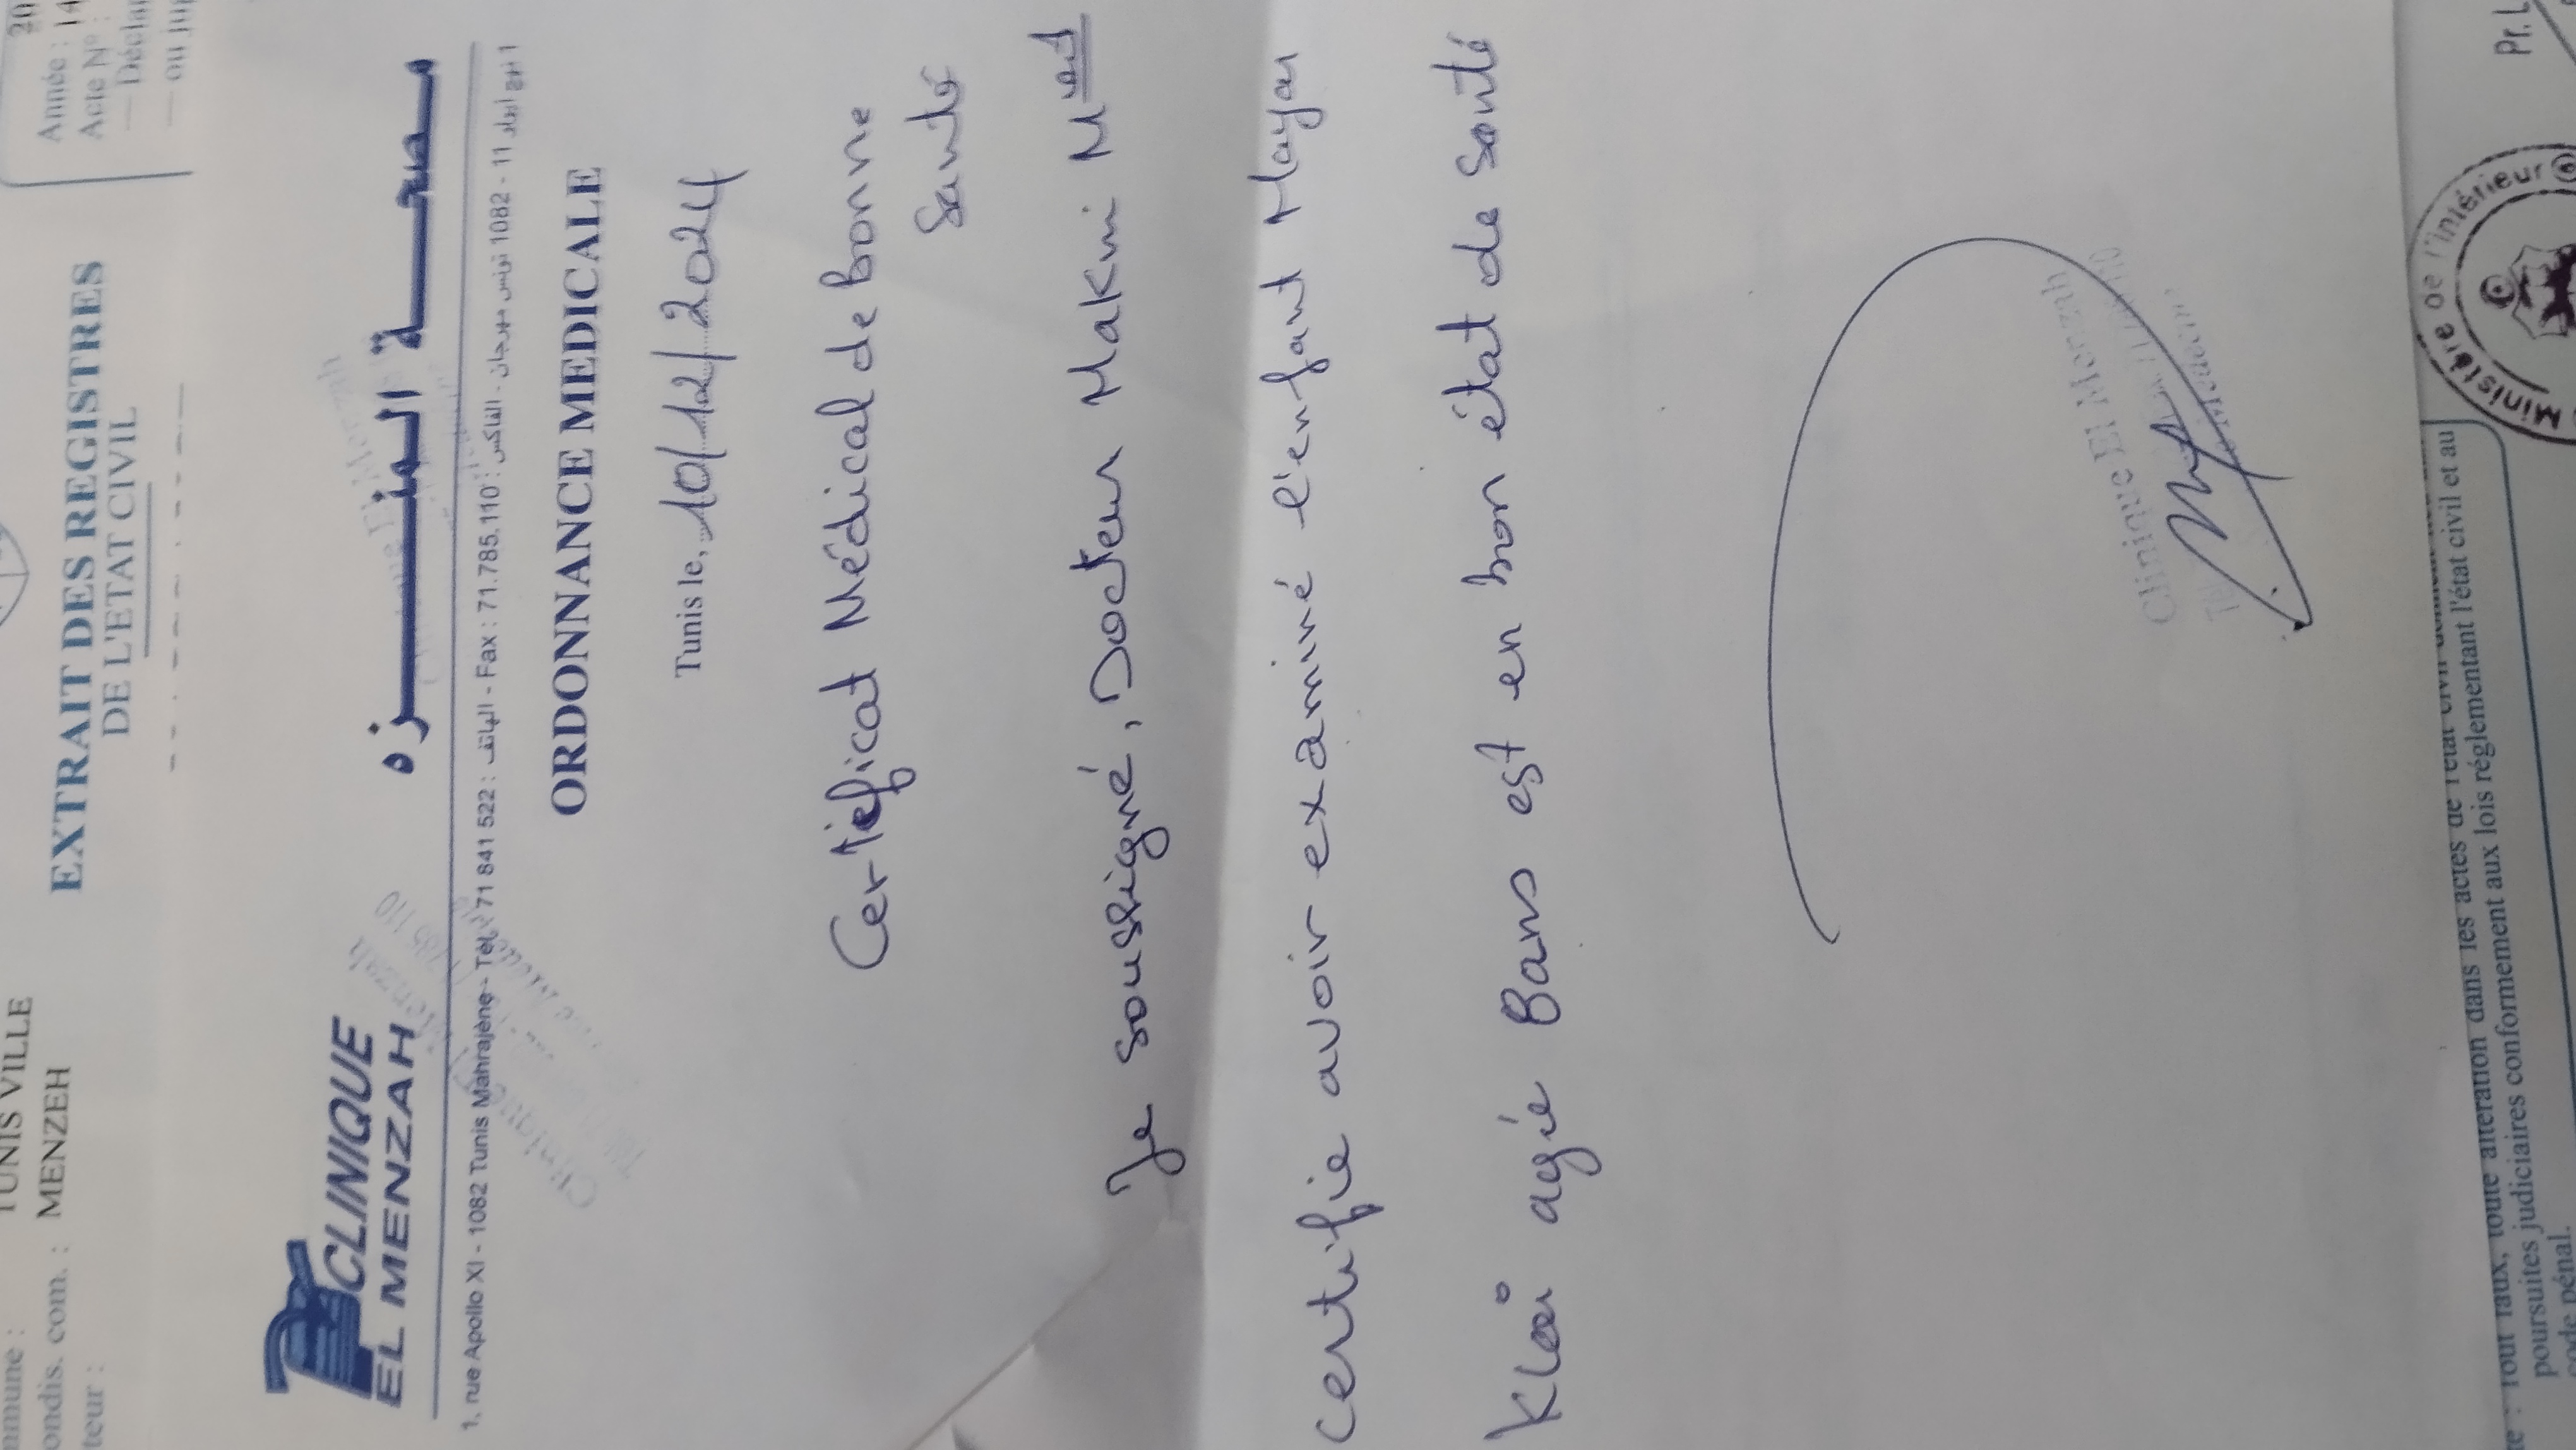 20
Année : 14
Acte N° :
— Déclar
— ou jug
EXTRAIT DES REGISTRES
DE L'ETAT CIVIL
TUNIS VILLE
MENZEH
mmune :
ondis. com. :
teur :
CLINIQUE
EL MENZAH
مصحة المنزه
1, rue Apollo XI - 1082 Tunis Mahrajène - Tél. 71 841 522 : الهاتف - Fax : 71.785.110 : الفاكس - 1082 تونس مهرجان - 11 نهج ابولو 1
ORDONNANCE MEDICALE
Tunis le, 10/12/2024
Certificat Médical de bonne
Santé
Je soussigné, Docteur Makni Med
certifie avoir examiné l'enfant Mayar
Klai agée 8ans est en bon état de santé
Clinique El Menzah
poursuites judiciaires conformement aux lois réglementant l'état civil et au
code pénal.
Ministère de l'Intérieur
Pr. L